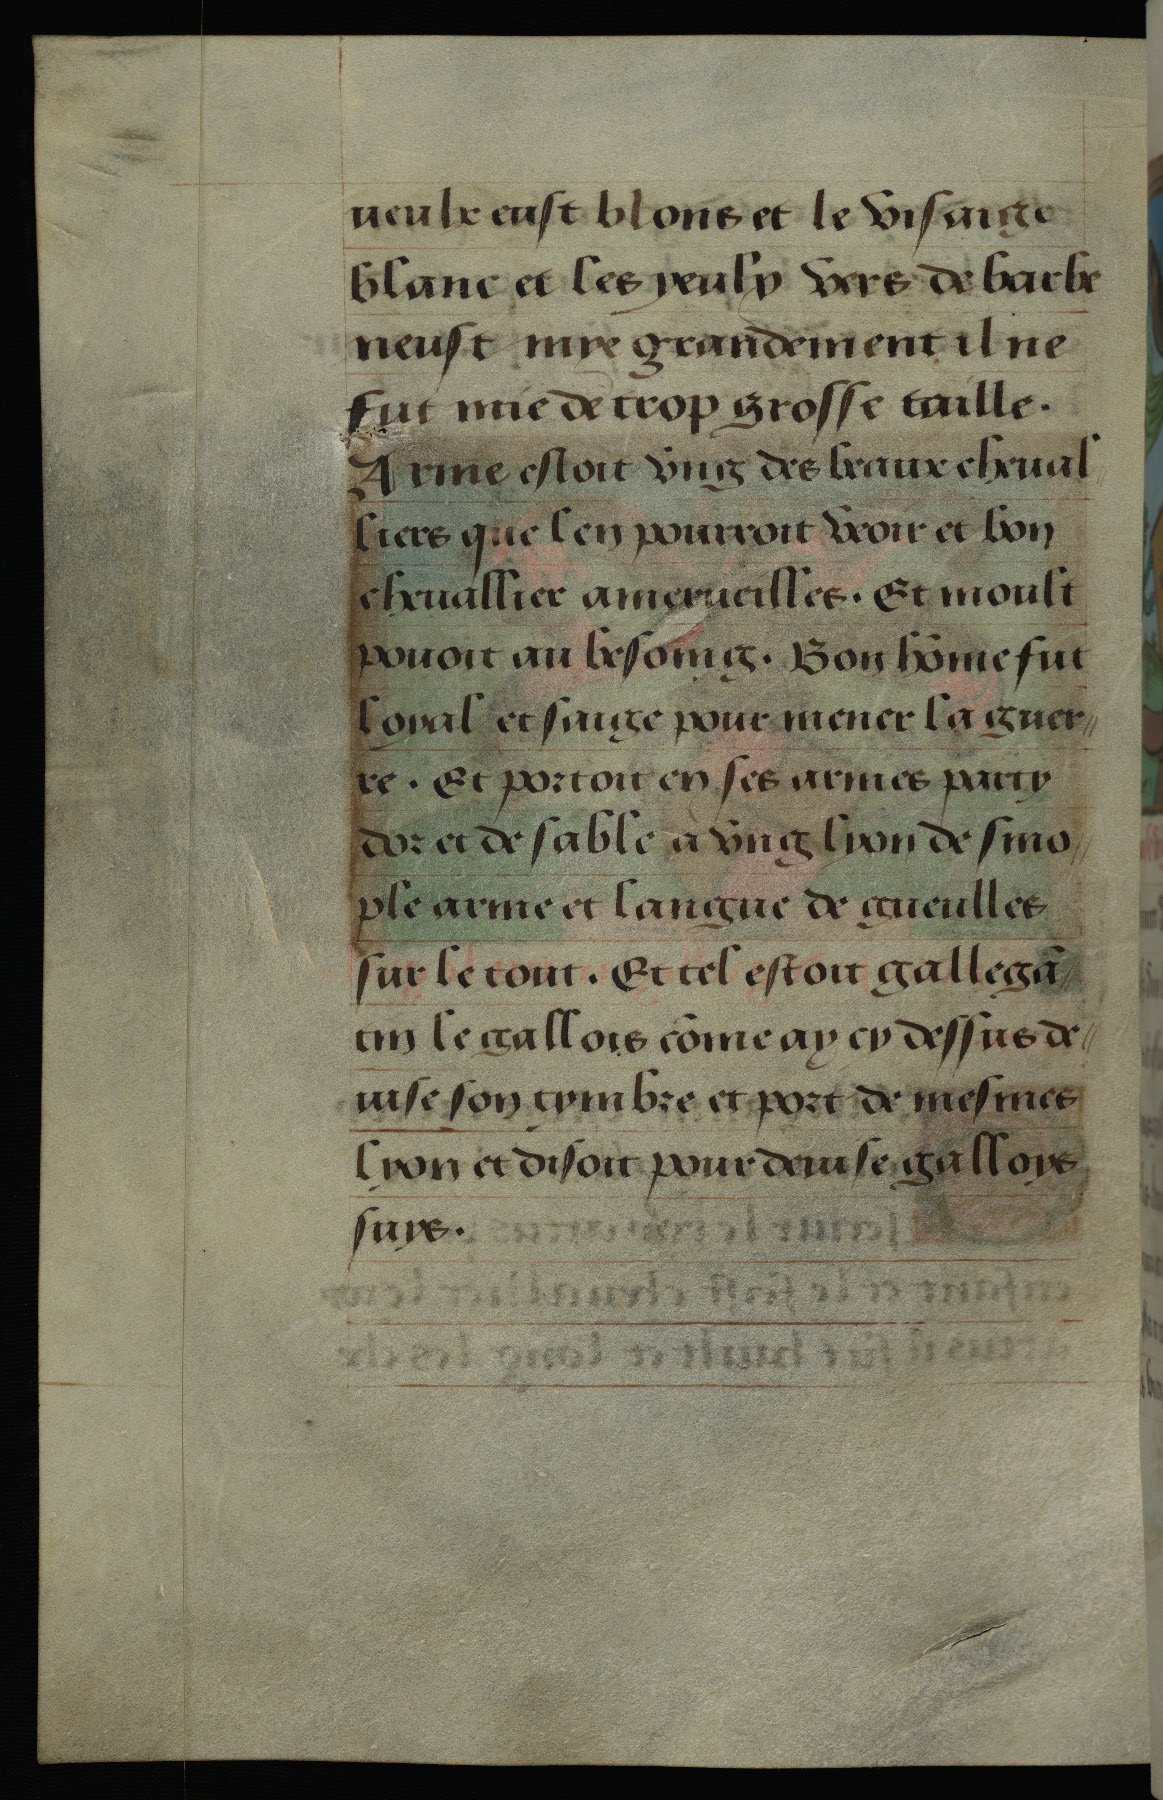 ueulx eust blons et le visaige
blanc et les yeulx vers de barbe
neust mye grandement il ne
fut mie de trop grosse taille.
Arme estoit vng des beaux cheual
liers que len pourroit veoir et bon
cheuallier a merueilles. Et moult
pouoit au besoing. Bon hõme fut
loyal et saige pour mener la guer//
re. Et portoit en ses armes party
dor et de sable a vng lyon de sino//
ple arme et langue de gueulles
sur le tout. Et tel estoit gallegã//
tin le gallois cõme ay cy dessus de//
uise son tymbre et port de mesmes
lyon et disoit pour deuise galloys
suys.